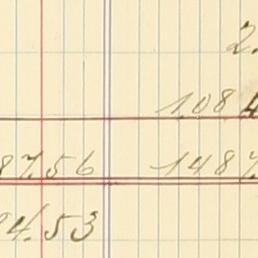 2.
1084
87.56 1487.
24.53